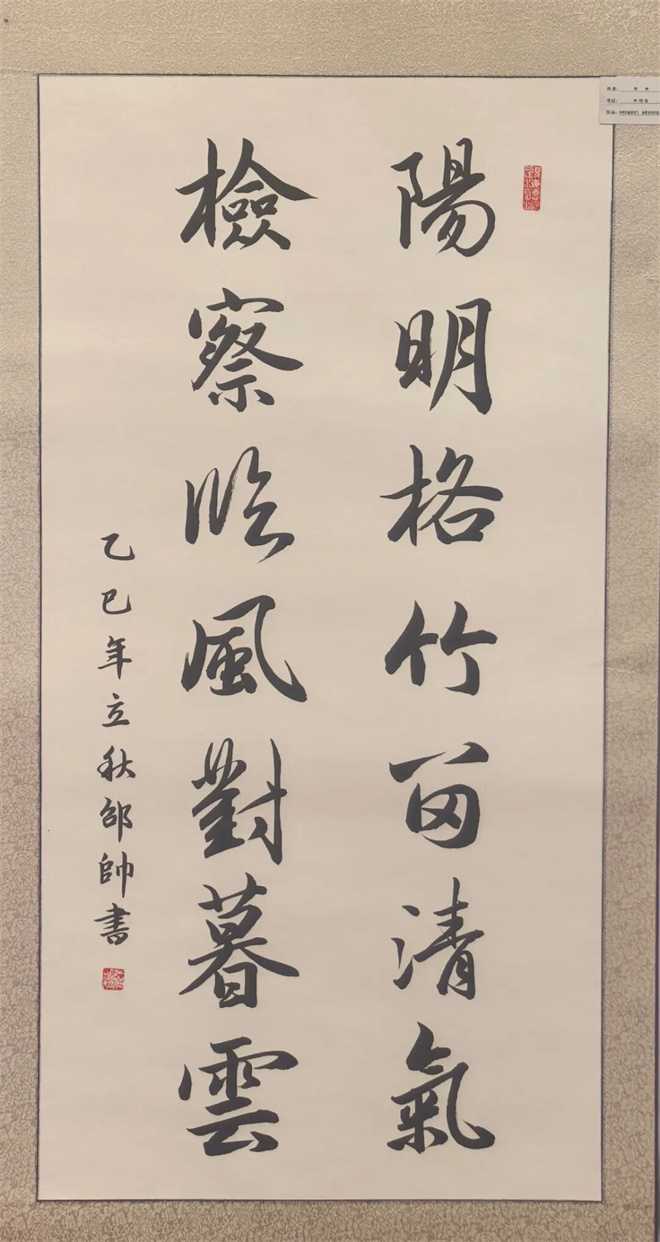 陽明格竹留清氣
檢察臨風對暮雲
乙巳年立秋邵帥書